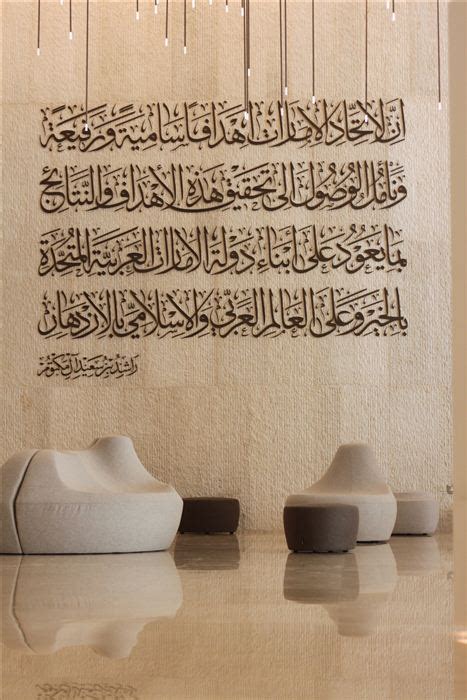 إنّ لاتحاد الإمارات أهدافاً ساميةً ورفيعةً
ونأمل الوصول إلى تحقيق هذه الأهداف والنتائج
بما يعود على أبناء دولة الإمارات العربية المتحدة
بالخير وعلى العالم العربي والإسلامي بالازدهار
راشد بن سعيد آل مكتوم